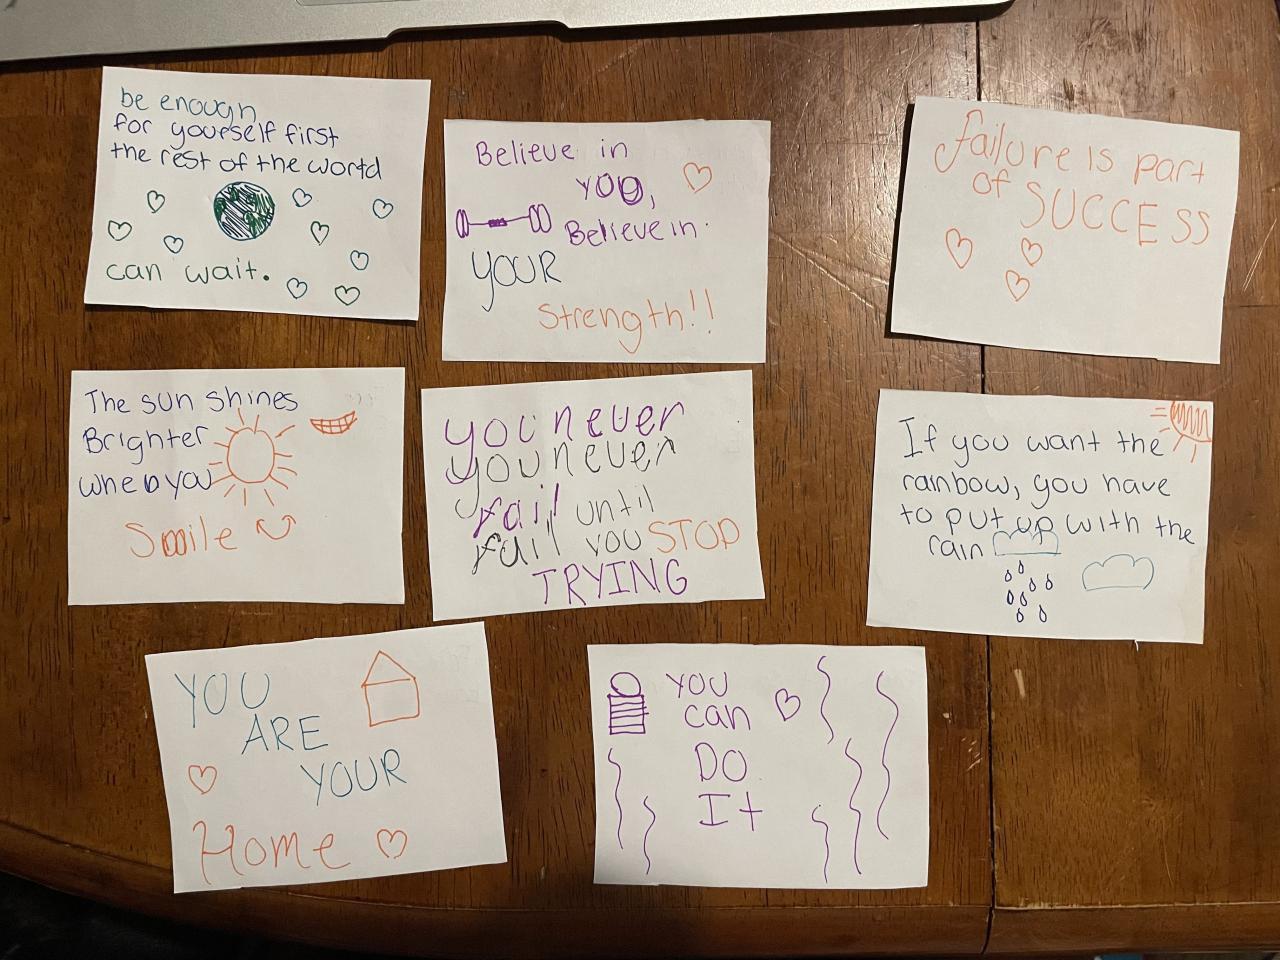 be enough
for yourself first
the rest of the world
can wait.
Believe in
YOU,
Believe in
YOUR
Strength!!
failure is part
of SUCCESS
The sun shines
Brighter
when you
Smile
you never
you never
fail until
fail you STOP
TRYING
If you want the
rainbow, you have
to put up with the
rain
YOU
ARE
YOUR
Home
YOU
can
DO
It